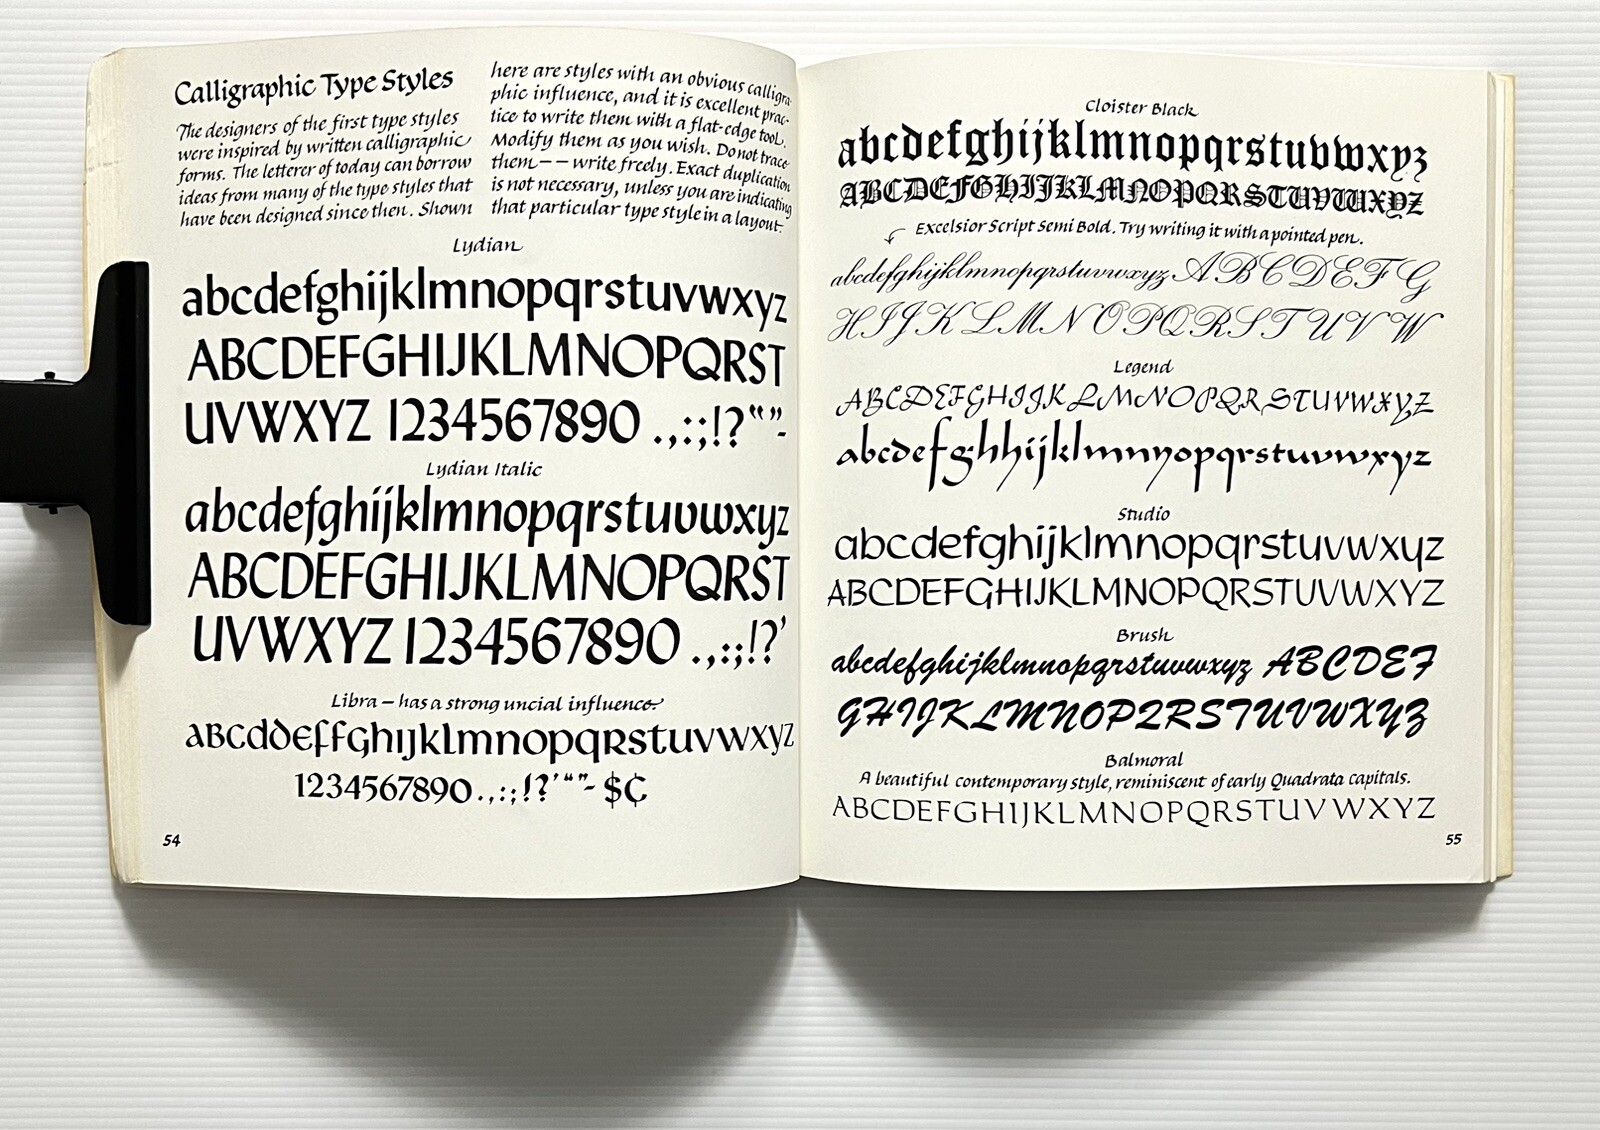 Calligraphic Type Styles
The designers of the first type styles
were inspired by written calligraphic
forms. The letterer of today can borrow
ideas from many of the type styles that
have been designed since then. Shown
here are styles with an obvious calligra-
phic influence, and it is excellent prac-
tice to write them with a flat-edge tool.
Modify them as you wish. Do not trace
them -- write freely. Exact duplication
is not necessary, unless you are indicating
that particular type style in a layout.
Lydian
abcdefghijklmnopqrstuvwxyz
ABCDEFGHIJKLMNOPQRST
UVWXYZ 1234567890 .,:;!?“”-
Lydian Italic
abcdefghijklmnopqrstuvwxyz
ABCDEFGHIJKLMNOPQRST
UVWXYZ 1234567890 .,:;!?'
Libra – has a strong uncial influence.
abcddeffghijklmnopqrstuvwxyz
1234567890.,:;!?'“”- $¢
54
Cloister Black
abcdefghijklmnopqrstuvwxyz
ABCDEFGHIJKLMNOPQRSTUVWXYZ
Excelsior Script Semi Bold. Try writing it with a pointed pen.
abcdefghijklmnopqrstuvwxyz ABCDEFG
HIJKLMNOPQRSTUVW
Legend
ABCDEFGHIJKLMNOPQRSTUVWXYZ
abcdefghhijklmnnopqrstuvwxyz
Studio
abcdefghijklmnopqrstuvwxyz
ABCDEFGHIJKLMNOPQRSTUVWXYZ
Brush
abcdefghijklmnopqrstuvwxyz ABCDEF
GHIJKLMNOPQRSTUVWXYZ
Balmoral
A beautiful contemporary style, reminiscent of early Quadrata capitals.
ABCDEFGHIJKLMNOPQRSTUVWXYZ
55